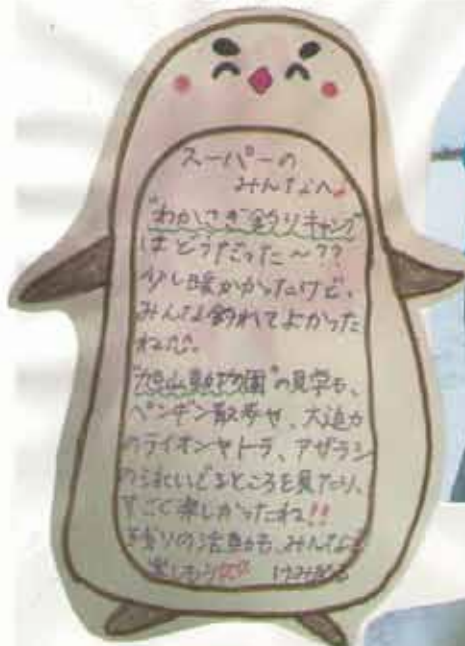 スーパーの
みんなへ♪
"わかさぎ釣りキャンプ"
はどうだった〜??
少し暖かかったけど、
みんな釣れてよかった
ね
"旭山動物園"の見学も、
ペンギン散歩や、大迫力
のライオンやトラ、アザラシ
のおよいでるところを見たり、
すごく楽しかったね!!
残りの活動も、みんなで
楽しもう♡♡